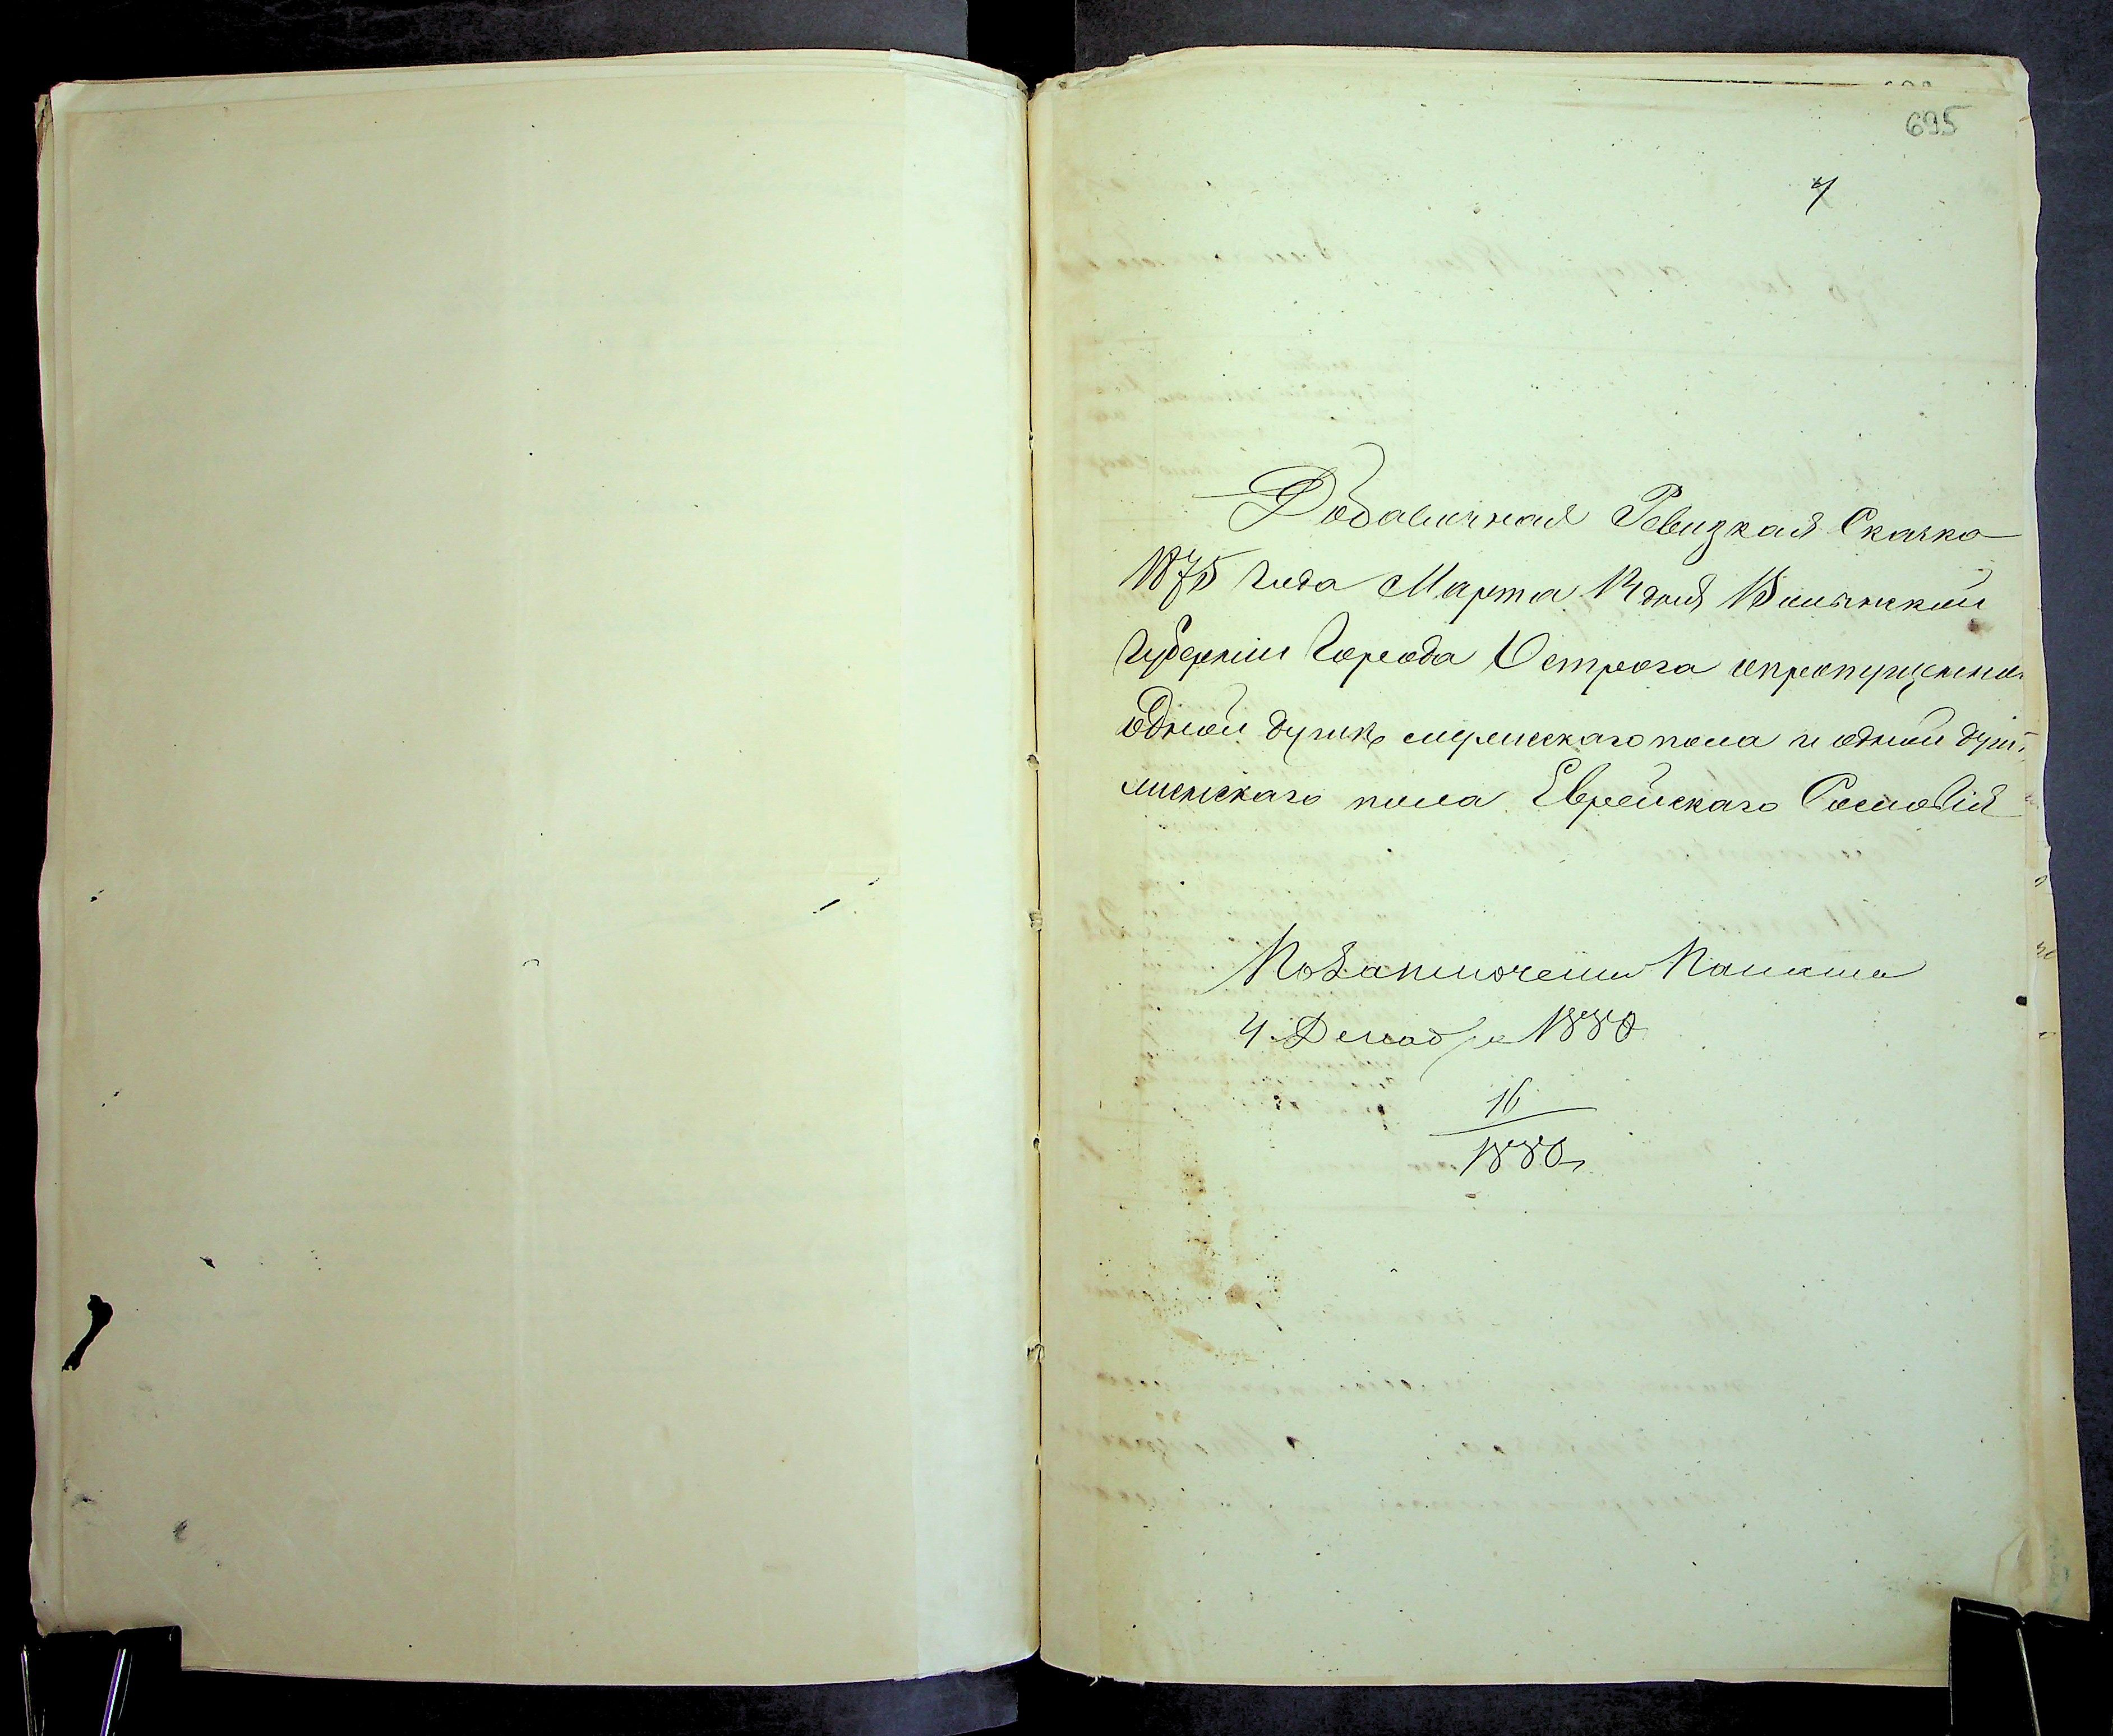 695
4
Добавочная Ревизкая Сказка
1875 года Марта 14 дня Волынской
Губернии Города Острога опропущенной
одной душе мужескаго пола и одной душ.
женскаго пола Еврейскаго Сословія
По Заключению Палаты
4 Декабря 1880
16
1880